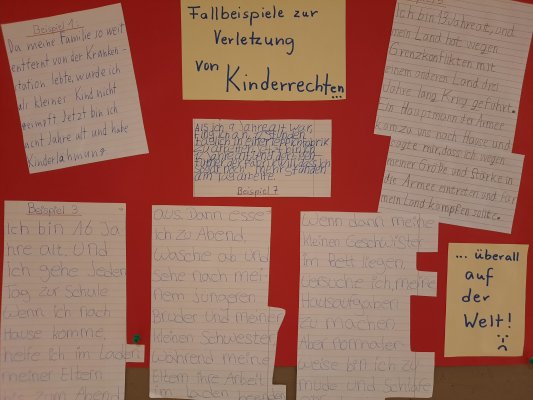 Fallbeispiele zur
Verletzung
von Kinderrechten...
Beispiel 1
Da meine Familie so weit
entfernt von der Kranken-
station lebte, wurde ich
als kleiner Kind nicht
geimpft. Jetzt bin ich
acht Jahre alt und habe
Kinderlähmung
Als ich 9 Jahre alt war,
fing ich an, 12 Stunden
täglich in einer Teppichfabrik
zu arbeiten.
am
Beispiel 7
ich bin 13 Jahre alt, und
mein Land hat wegen
Grenzkonflikten mit
einem anderen Land drei
Jahre lang Krieg geführt.
Ein Hauptmann der Armee
kam zu uns nach Hause und
sagte mir, dass ich wegen
meiner Größe und Stärke in
die Armee eintreten und für
mein Land kämpfen sollte.
Beispiel 3
Ich bin 16 Ja
hre alt. Und
ich gehe Jeden
Tag zur Schule
Wenn ich nach
Hause komme,
helfe ich im Laden
meiner Eltern
bis zum Abend
aus. Dann esse
ich zu Abend
Wasche ab und
sehe nach mei-
nem Jüngeren
Bruder und meiner
kleinen Schwester,
während meine
Eltern ihre Arbeit
im Laden beenden
Wenn dann meine
kleinen Geschwister
im Bett liegen,
versuche ich, meine
Hausaufgaben
zu machen
Aber normaler
weise bin ich zu
müde und schlafe
... überall
auf
der
Welt!